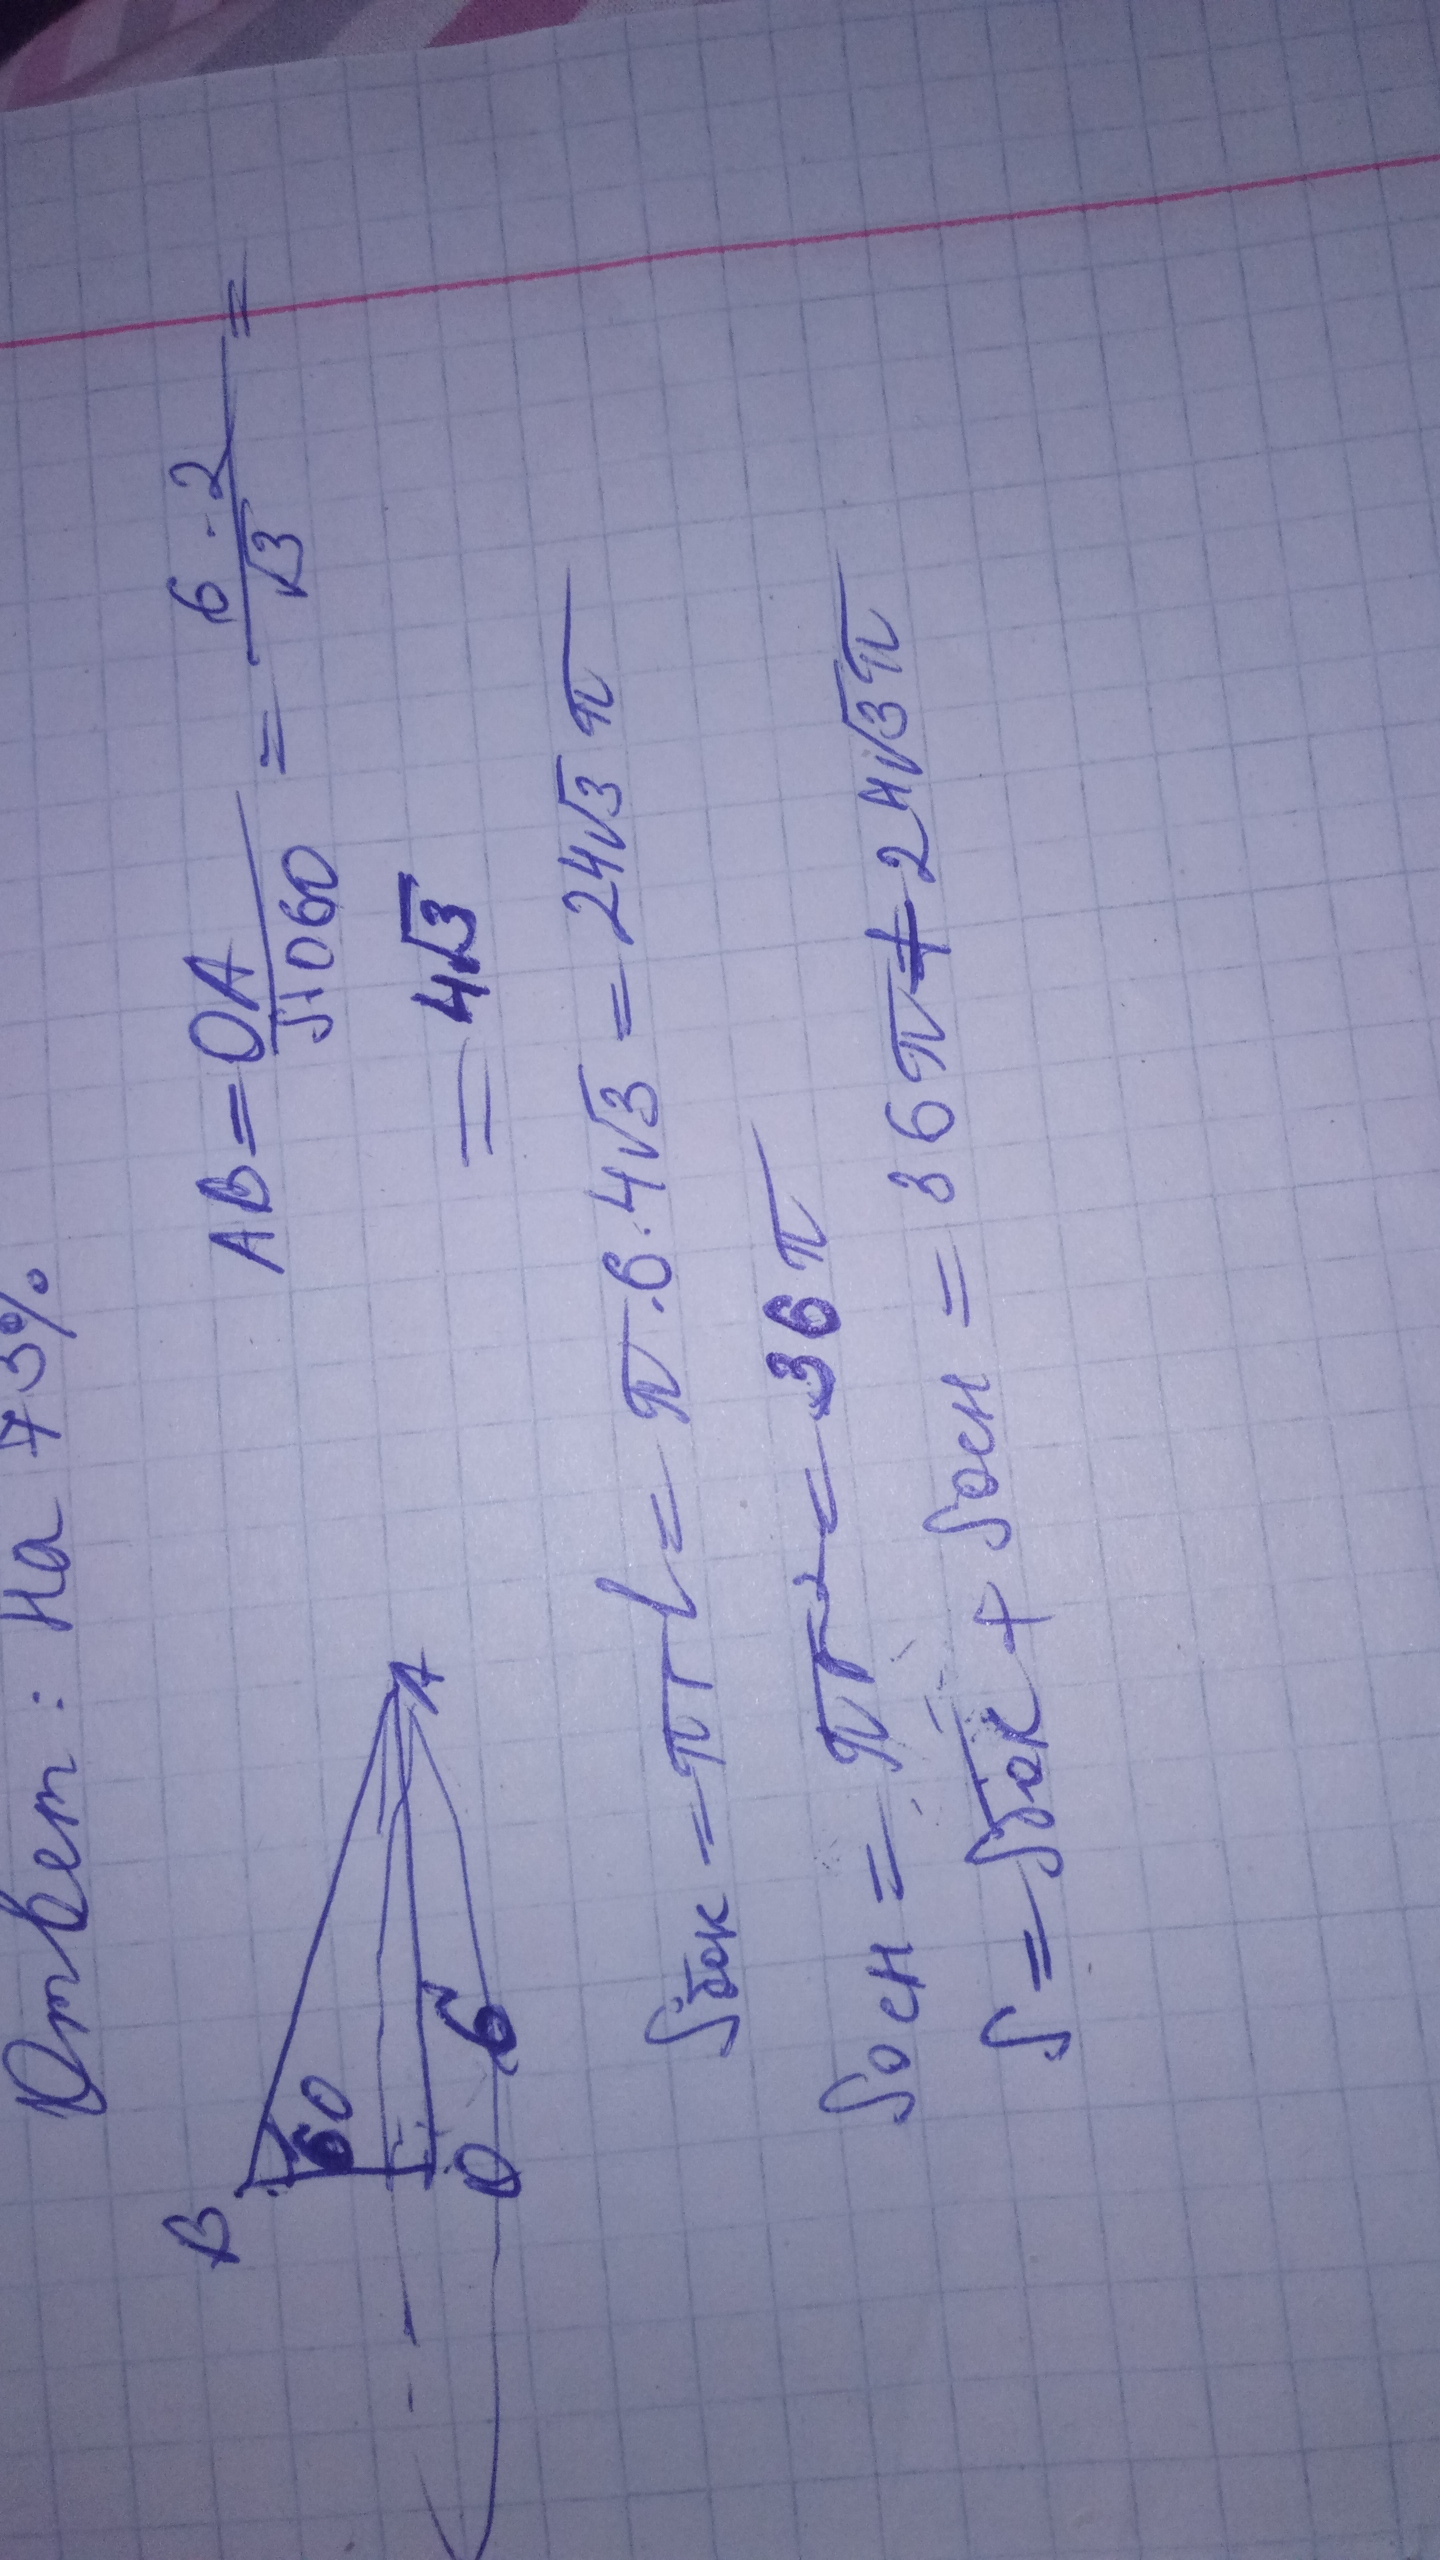 Ответ: На 73%
B
60
O
6
A
AB = OA / sin 60 = 6 · 2 / √3 =
= 4√3
Sбок = πrl = π · 6 · 4√3 = 24√3 π
Sосн = πr² = 36π
S = Sбок + Sосн = 36π + 24√3π